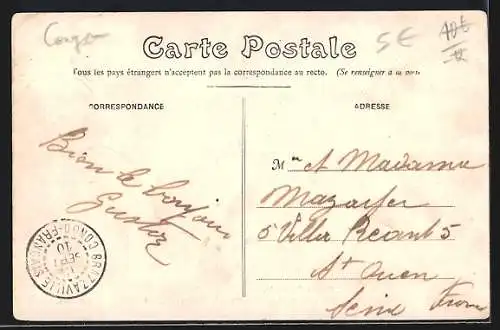 Congo
5€
Carte Postale
Tous les pays étrangers n'acceptent pas la correspondance au recto. (Se renseigner à la
CORRESPONDANCE
ADRESSE
Bien le bonjour
Gustor
BRAZZAVILLE
CONGO-FRANÇAIS
SEPT
10
M et Madame
5 Villa
St Ouen
Seine France